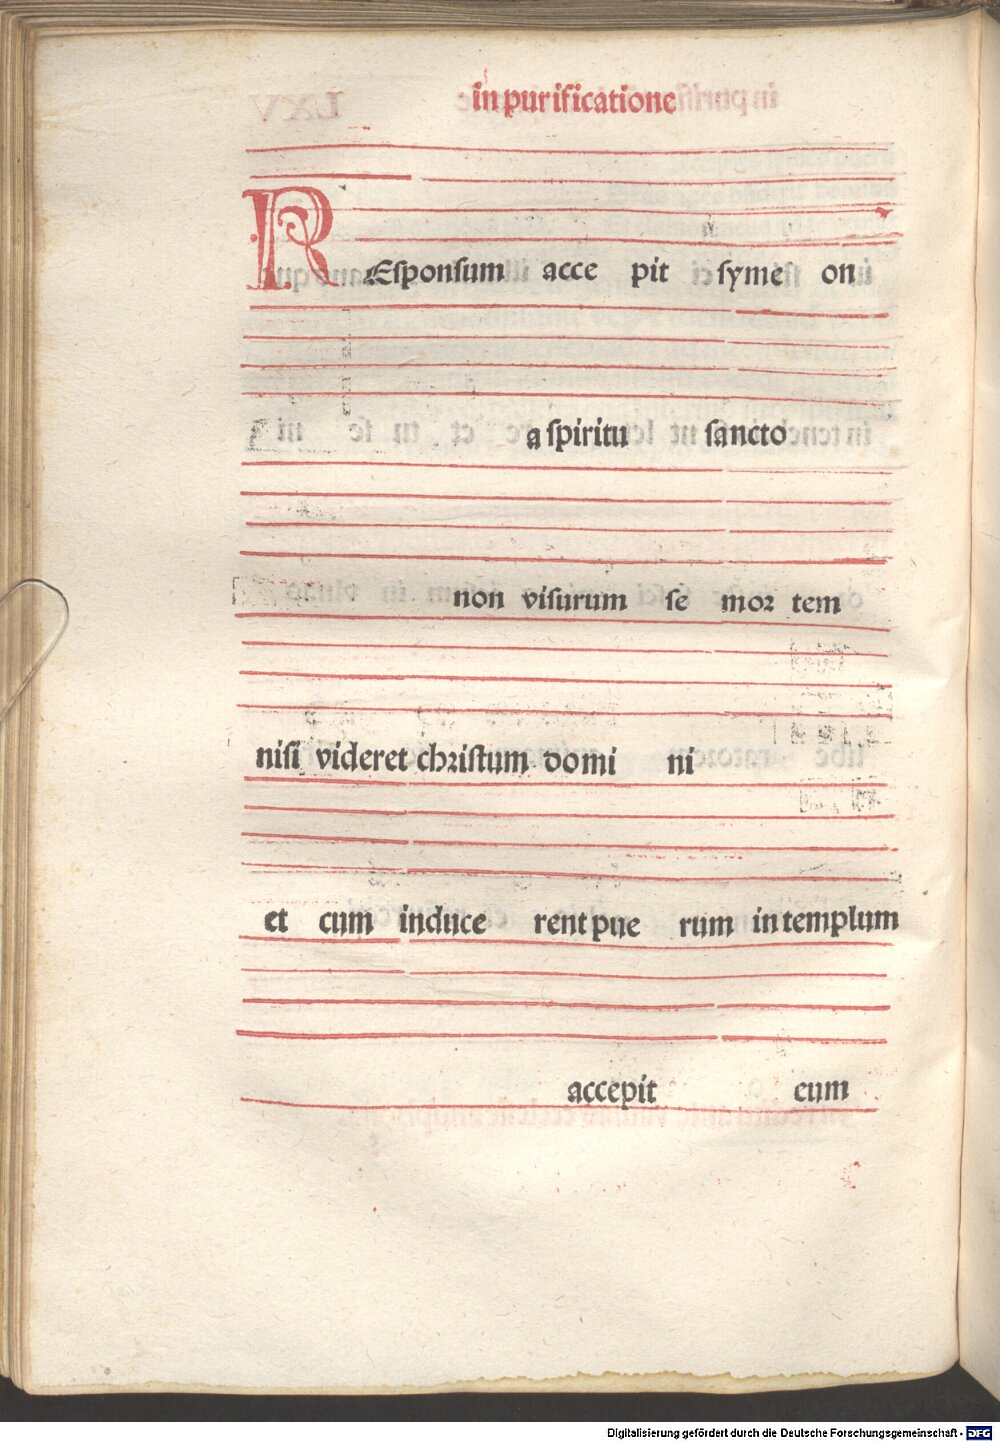 in purificatione
REsponsum acce pit symeſ on
a ſpiritu ſancto
non viſurum ſe moꝛ tem
niſi videret chꝛiſtum domi ni
et cum induce rent pue rum in templum
accepit eum
Digitalisierung gefördert durch die Deutsche Forschungsgemeinschaft - DFG